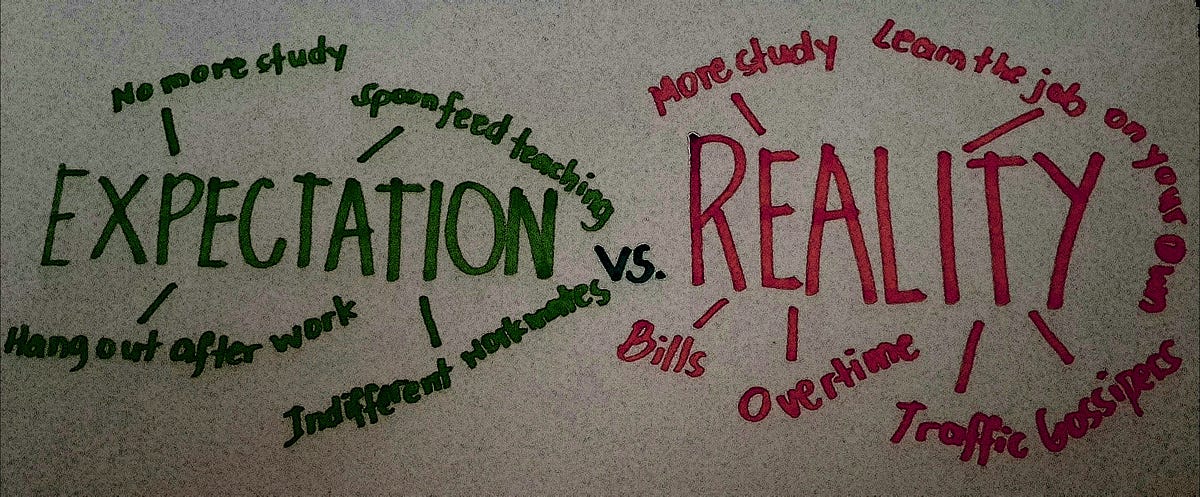 No more study
Spoon feed teaching
EXPECTATION
Hang out after work
Indifferent workmates
vs.
More study
Learn the job on your own
REALITY
Bills
Overtime
Traffic
Gossipers